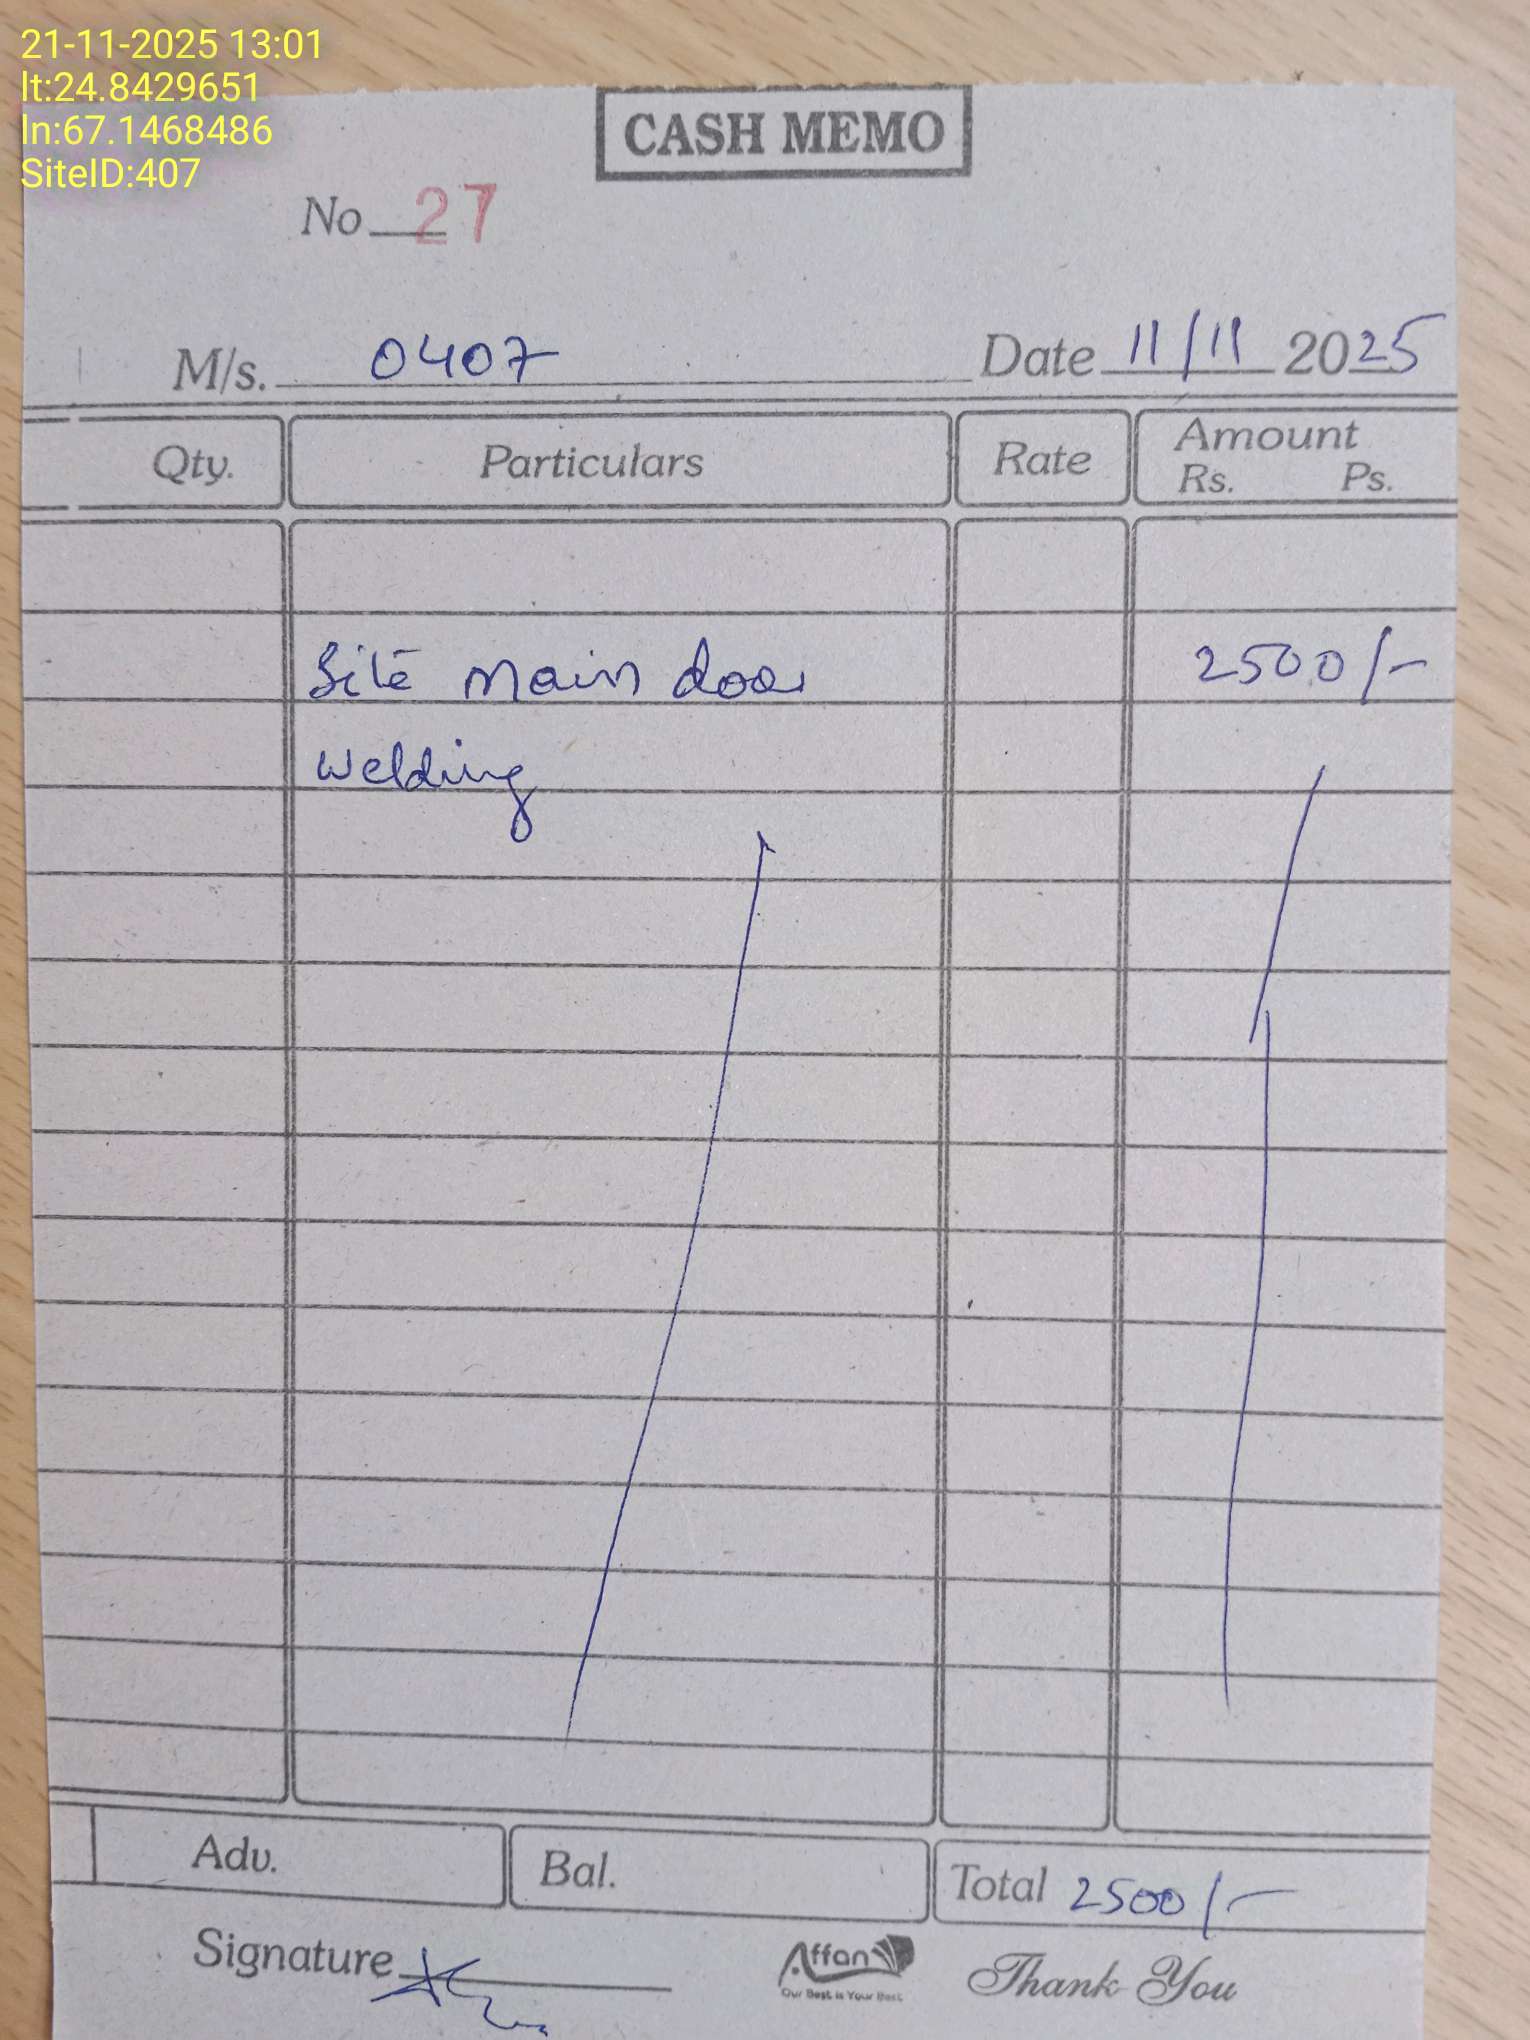 21-11-2025 13:01
lt:24.8429651
ln:67.1468486
SiteID:407
CASH MEMO
No 27
M/s. 0407 Date 11/11 2025
Qty. Particulars Rate Amount
Rs. Ps.
Site main door 2500/-
welding
Adv. Bal. Total 2500/-
Signature
Affan
Our Best is Your Best
Thank You